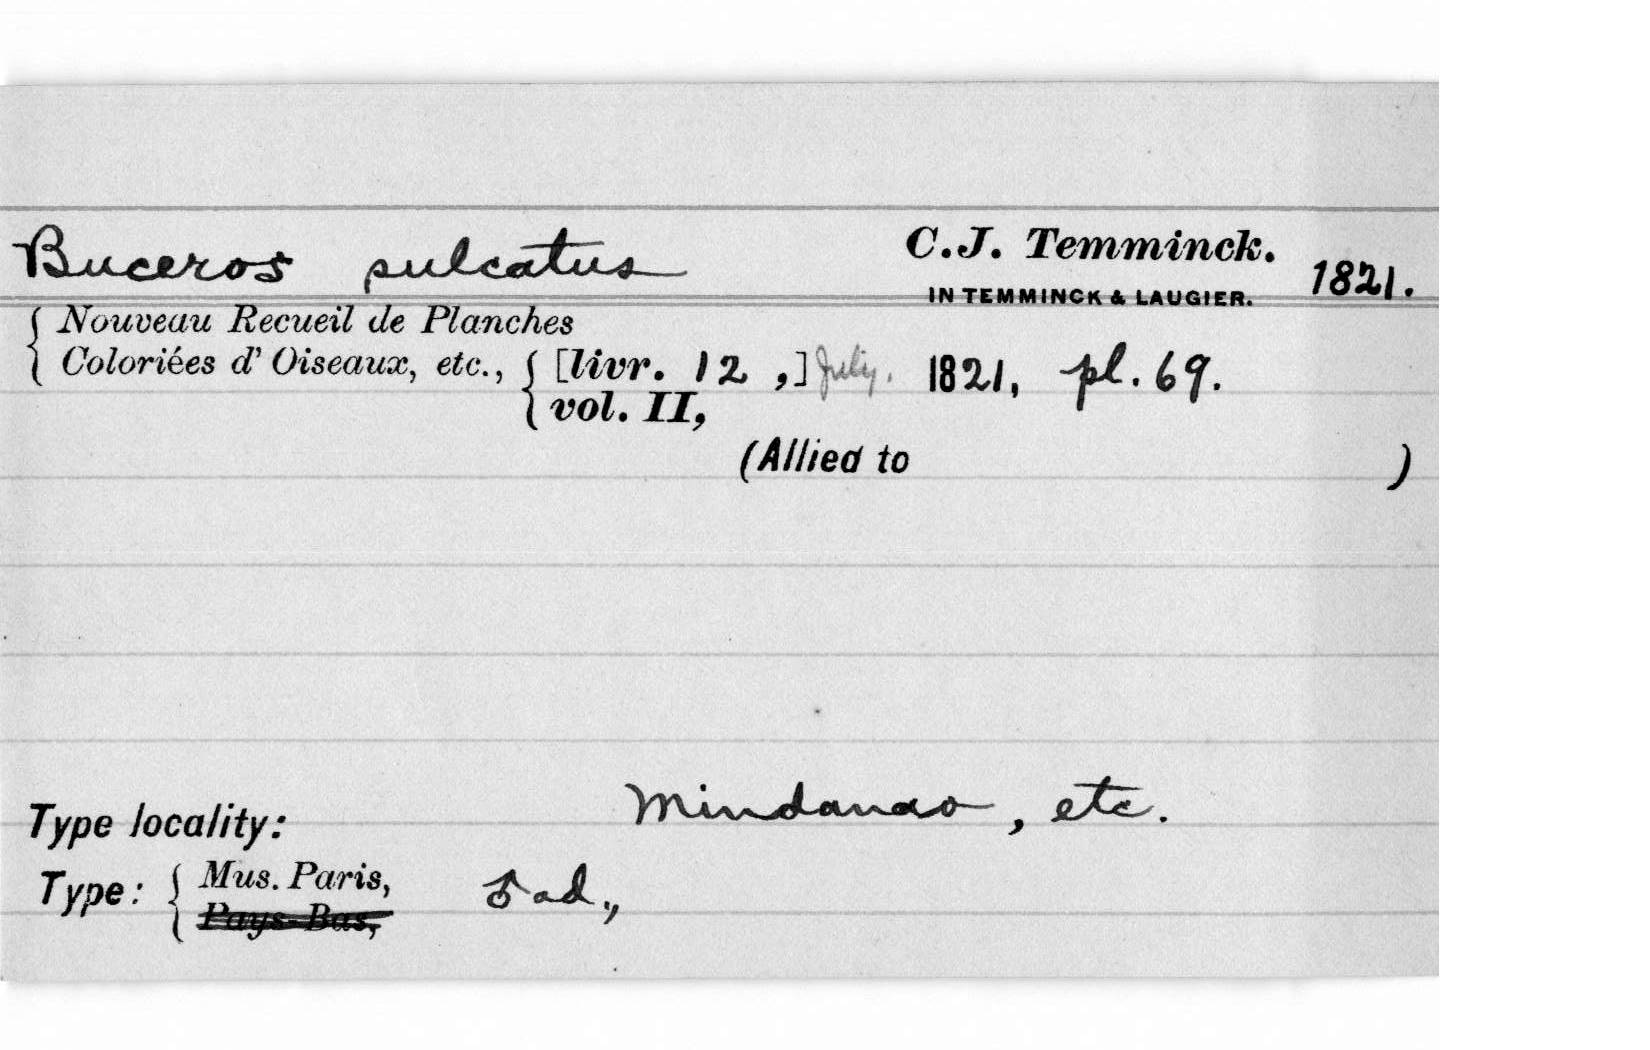 Buceros sulcatus C.J. Temminck. 1821.
IN TEMMINCK & LAUGIER.
Nouveau Recueil de Planches
Coloriées d' Oiseaux, etc., [livr. 12 ,] July. 1821, pl. 69.
vol. II,
(Allied to )
Type locality: Mindanao, etc.
Type: Mus. Paris, ♂ ad.,
Pays-Bas,